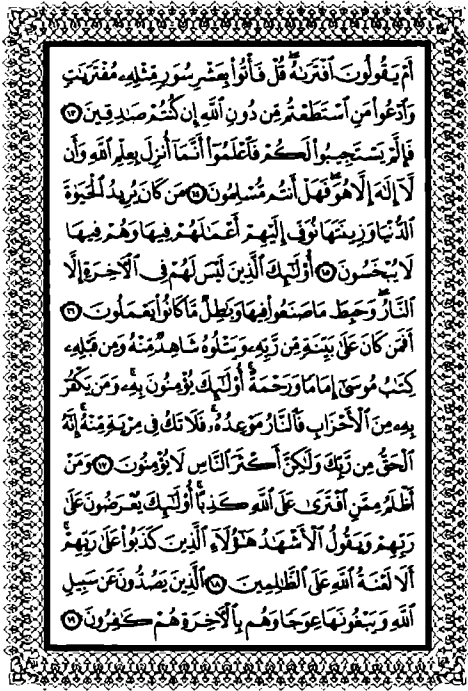 أَمْ يَقُولُونَ ٱفْتَرَىٰهُ ۖ قُلْ فَأْتُوا۟ بِعَشْرِ سُوَرٍ مِّثْلِهِۦ مُفْتَرَيَٰتٍ
وَٱدْعُوا۟ مَنِ ٱسْتَطَعْتُم مِّن دُونِ ٱللَّهِ إِن كُنتُمْ صَٰدِقِينَ ١٣
فَإِلَّمْ يَسْتَجِيبُوا۟ لَكُمْ فَٱعْلَمُوٓا۟ أَنَّمَآ أُنزِلَ بِعِلْمِ ٱللَّهِ وَأَن
لَّآ إِلَٰهَ إِلَّا هُوَ ۖ فَهَلْ أَنتُم مُّسْلِمُونَ ١٤ مَن كَانَ يُرِيدُ ٱلْحَيَوٰةَ
ٱلدُّنْيَا وَزِينَتَهَا نُوَفِّ إِلَيْهِمْ أَعْمَٰلَهُمْ فِيهَا وَهُمْ فِيهَا
لَا يُبْخَسُونَ ١٥ أُو۟لَٰٓئِكَ ٱلَّذِينَ لَيْسَ لَهُمْ فِى ٱلْءَاخِرَةِ إِلَّا
ٱلنَّارُ ۖ وَحَبِطَ مَا صَنَعُوا۟ فِيهَا وَبَٰطِلٌ مَّا كَانُوا۟ يَعْمَلُونَ ١٦
أَفَمَن كَانَ عَلَىٰ بَيِّنَةٍ مِّن رَّبِّهِۦ وَيَتْلُوهُ شَاهِدٌ مِّنْهُ وَمِن قَبْلِهِۦ
كِتَٰبُ مُوسَىٰٓ إِمَامًا وَرَحْمَةً ۚ أُو۟لَٰٓئِكَ يُؤْمِنُونَ بِهِۦ ۚ وَمَن يَكْفُرْ
بِهِۦ مِنَ ٱلْأَحْزَابِ فَٱلنَّارُ مَوْعِدُهُۥ ۚ فَلَا تَكُ فِى مِرْيَةٍ مِّنْهُ ۚ إِنَّهُ
ٱلْحَقُّ مِن رَّبِّكَ وَلَٰكِنَّ أَكْثَرَ ٱلنَّاسِ لَا يُؤْمِنُونَ ١٧ وَمَنْ
أَظْلَمُ مِمَّنِ ٱفْتَرَىٰ عَلَى ٱللَّهِ كَذِبًا ۚ أُو۟لَٰٓئِكَ يُعْرَضُونَ عَلَىٰ
رَبِّهِمْ وَيَقُولُ ٱلْأَشْهَٰدُ هَٰٓؤُلَآءِ ٱلَّذِينَ كَذَبُوا۟ عَلَىٰ رَبِّهِمْ ۚ
أَلَا لَعْنَةُ ٱللَّهِ عَلَى ٱلظَّٰلِمِينَ ١٨ ٱلَّذِينَ يَصُدُّونَ عَن سَبِيلِ
ٱللَّهِ وَيَبْغُونَهَا عِوَجًا وَهُم بِٱلْءَاخِرَةِ هُمْ كَٰفِرُونَ ١٩